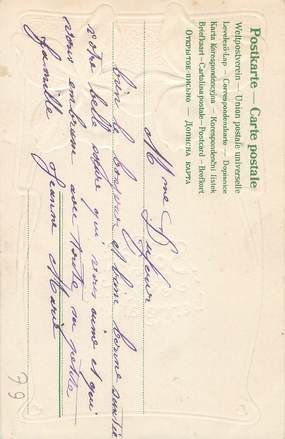 Postkarte — Carte postale
Weltpostverein — Union postale universelle
Levelező-Lap — Correspondenzkarte — Dopisnice
Karta korespondencyjna — Korespondenční lístek
Briefkaart — Cartolina postale — Postcard — Brefkort
Открытое письмо — Дописна карта
Mme Dufour
bien le bonjour et bien bonne santé
votre belle qui vous aime et qui
vous embrasse avec toute sa petite
famille Jeanne Marie